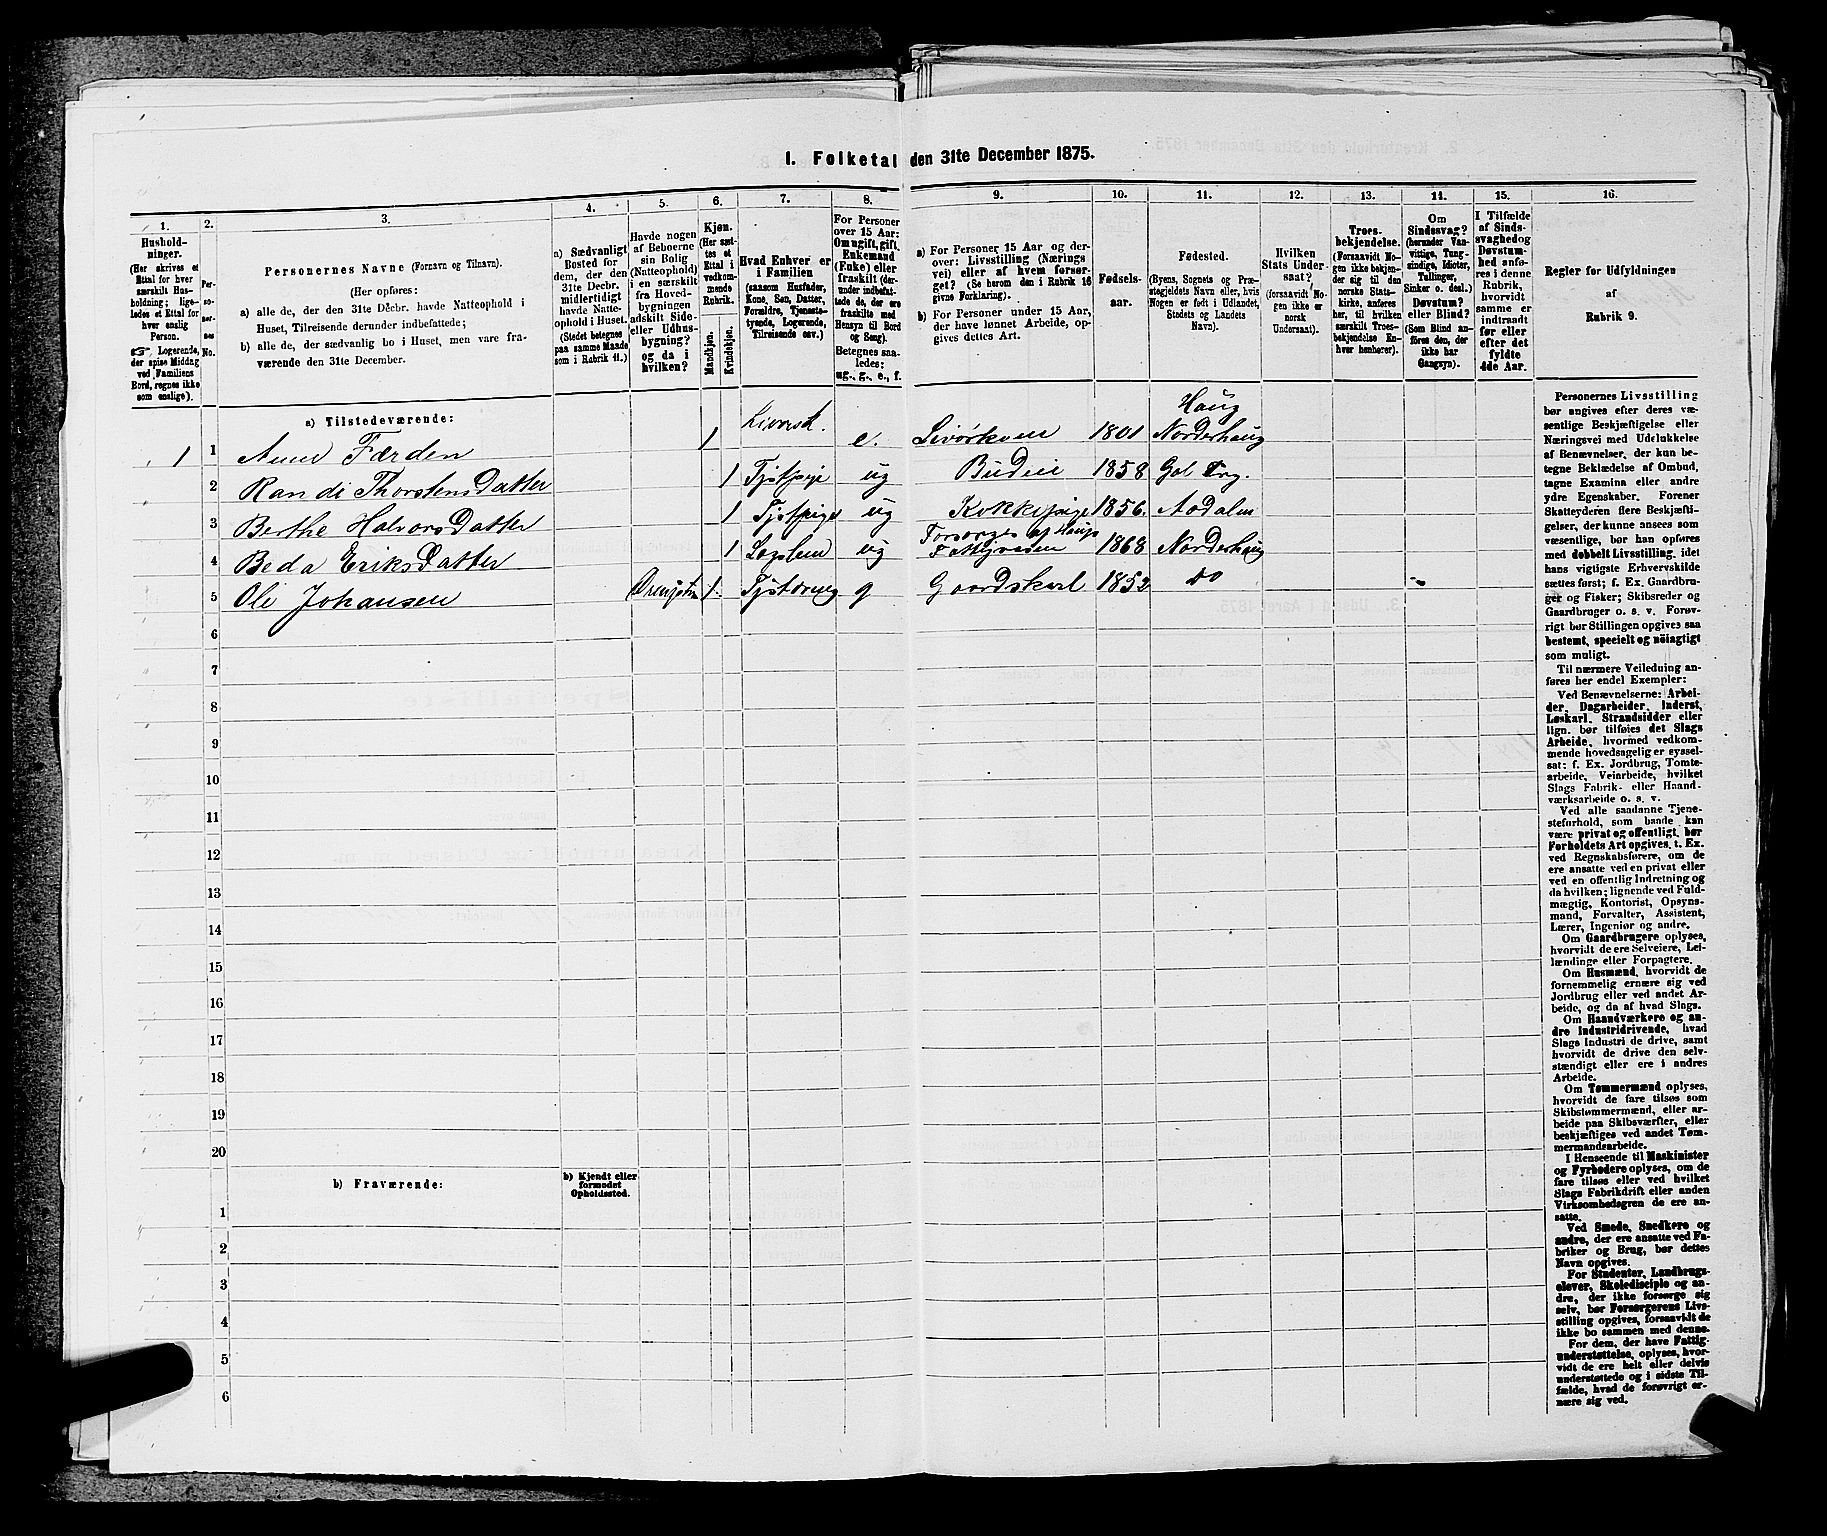 1. Folketal den 31te December 1875.
1. 2. 3. 4. 5. 6. 7. 8. 9. 10. 11. 12. 13. 14. 15. 16.
Hushold-
ninger.
(Her skrives et
Ettal for hver
særskilt Hus-
holdning; lige-
ledes et Ettal for
hver enslig
Person.
☞ Logerende,
der spise Middag
ved Familiens
Bord, regnes ikke
som enslige).
Per-
so-
ner-
nes
No.
Personernes Navne (Fornavn og Tilnavn).
(Her opføres:
a) alle de, der den 31te Decbr. havde Natteophold i
Huset, Tilreisende derunder indbefattede;
b) alle de, der sædvanlig bo i Huset, men vare fra-
værende den 31te December.
a) Sædvanligt
Bosted for
dem, der den
31te Decbr.
midlertidigt
havde Natte-
ophold i Huset.
(Stedet betegnes
paa samme Maade
som i Rubrik 11.)
Havde nogen
af Beboerne
sin Bolig
(Natteophold)
i en særskilt
fra Hoved-
bygningen
adskilt Side-
eller Udhus-
bygning?
og da i
hvilken?
Kjøn.
(Her sæt-
tes et
Ettal i
vedkom-
mende
Rubrik.
Mandkjøn.
Kvindekjøn.
Hvad Enhver er
i Familien
(saasom Husfader,
Kone, Søn, Datter,
Forældre, Tjeneste-
tyende, Logerende,
Tilreisende osv.)
For Personer
over 15 Aar:
Om ugift, gift,
Enkemand
(Enke) eller
fraskilt (der-
under indbefat-
tede de, der ere
fraskilte med
Hensyn til Bord
og Seng).
Betegnes saa-
ledes:
ug., g., e., f.
a) For Personer 15 Aar og der-
over: Livsstilling (Nærings
vei) eller af hvem forsør-
get? (Se herom den i Rubrik 16
givne Forklaring).
b) For Personer under 15 Aar,
der have lønnet Arbeide, op-
gives dettes Art.
Fødsels-
aar.
Fødested.
(Byens, Sognets og Præ-
stegjeldets Navn eller, hvis
Nogen er født i Udlandet,
Stedets og Landets
Navn).
Hvilken
Stats Under-
saat?
(forsaavidt No-
gen ikke er
norsk
Undersaat).
Troes-
bekjendelse.
(Forsaavidt No-
gen ikke bekjen-
der sig til den
norske Stats-
kirke, anføres
her, til hvilken
særskilt Troes-
bekjendelse En-
hver henhører).
Om
Sindssvag?
(herunder Van-
vittige, Tung-
sindige, Idioter,
Tullinger,
Sinker o. desl.)
Døvstum?
eller Blind?
(Som Blind an-
føres den, der
ikke har
Gangsyn).
I Tilfælde
af Sinds-
svaghed og
Døvstum-
hed anfø-
res i denne
Rubrik,
hvorvidt
samme er
indtraadt
før eller
efter det
fyldte
4de Aar.
Regler for Udfyldningen
af
Rubrik 9.
a) Tilstedeværende:
1 1 Anne Færden 1 e. 1801 Haug Norderhaug
2 Randi ThorstensDatter 1 Tjstpige ug Budeie 1858 Gol
3 Berthe HalvorsDatter 1 Tjstpige ug Kokkepige 1856. Aadalen
4 Beda EriksDatter 1 Logslem ug Forsørges af Haugs Fattigvæsen 1868 Norderhaug
5 Ole Johansen 1. g Gaardskarl 1852 do
6
7
8
9
10
11
12
13
14
15
16
17
18
19
20
b) Fraværende:
b) Kjendt eller
formodet
Opholdssted.
1
2
3
4
5
6
Personernes Livsstilling
bør angives efter deres væ-
sentlige Beskjæftigelse eller
Næringsvei med Udelukkelse
af Benævnelser, der kun be-
tegne Beklædelse af Ombud,
tagne Examina eller andre
ydre Egenskaber. Forener
Skatteyderen flere Beskjæfti-
gelser, der kunne ansees som
væsentlige, bør han opføres
med dobbelt Livsstilling, idet
hans vigtigste Erhvervskilde
sættes først; f. Ex. Gaardbru-
ger og Fisker; Skibsreder og
Gaardbruger o. s. v. Forøv-
rigt bør Stillingen opgives saa
bestemt, specielt og nøiagtigt
som muligt.
Til nærmere Veiledning an-
føres her endel Exempler:
Ved Benævnelserne: Arbei-
der, Dagarbeider, Inderst,
Løskarl, Strandsidder eller
lign. bør tilføies det Slags
Arbeide, hvormed vedkom-
mende hovedsagelig er syssel-
sat: f. Ex. Jordbrug, Tomte-
arbeide, Veiarbeide, hvilket
Slags Fabrik- eller Haand-
værksarbeide o. s. v.
Ved alle saadanne Tjene-
steforhold, som baade kan
være privat og offentligt, bør
Forholdets Art opgives, t. Ex.
ved Regnskabsførere, om de
ere ansatte ved en privat eller
ved en offentlig Indretning og
da hvilken; lignende ved Fuld-
mægtig, Kontorist, Opsyns-
mand, Forvalter, Assistent,
Lærer, Ingeniør og andre.
Om Gaardbrugere oplyses,
hvorvidt de ere Selveiere, Lei-
lændinge eller Forpagtere.
Om Husmænd, hvorvidt de
fornemmelig ernære sig ved
Jordbrug eller ved andet Ar-
beide, og da af hvad Slags.
Om Haandværkere og an-
dre Industridrivende, hvad
Slags Industri de drive, samt
hvorvidt de drive den selv-
stændigt eller ere i andres
Arbeide.
Om Tømmermænd oplyses,
hvorvidt de fare tilsøs som
Skibstømmermænd, eller ar-
beide paa Skibsværfter, eller
beskjæftiges ved andet Tøm-
mermandsarbeide.
I Henseende til Maskinister
og Fyrbødere oplyses, om de
fare tilsøs eller ved hvilket
Slags Fabrikdrift eller anden
Virksomhedsgren de ere an-
satte.
Ved Smede, Snedkere og
andre, der ere ansatte ved Fa-
briker og Brug, bør dettes
Navn opgives.
For Studenter, Landbrugs-
elever, Skoledisciple og an-
dre, der ikke forsørge sig
selv, bør Forsørgerens Livs-
stilling opgives, forsaavidt de
ikke bo sammen med denne.
For dem, der have Fattig-
understøttelse, oplyses, hvor-
vidt de ere helt eller delvis
understøttede og i sidste Til-
fælde, hvad de forøvrigt er-
nære sig ved.